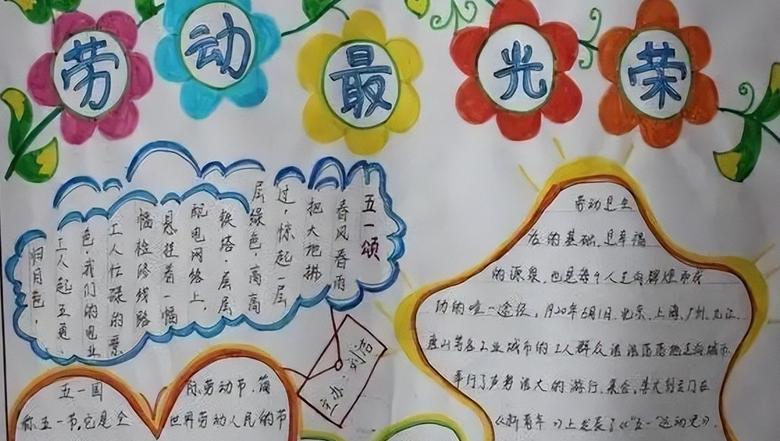 劳动最光荣
五一颂
春风春雨
把大地拂
过,惊起一层
层绿色,高高
铁塔,层层
配电网络上,
悬挂着一幅
幅检修线路
工人忙碌的景
色,我们的电业
工人起五更,
归月色,
劳动是生
存的基础,是幸福
的源泉,也是每个人走向辉煌和成
功的唯一途径,1920年5月1日,北京、上海、广州、九江、
唐山等各工业城市的工人群众浩浩荡荡地走向城市,
举行了声势浩大的游行、集会,李大钊专门在
《新青年》上发表了《"五一"运动史》,
五一国际劳动节,简
称五一节,它是全世界劳动人民的节